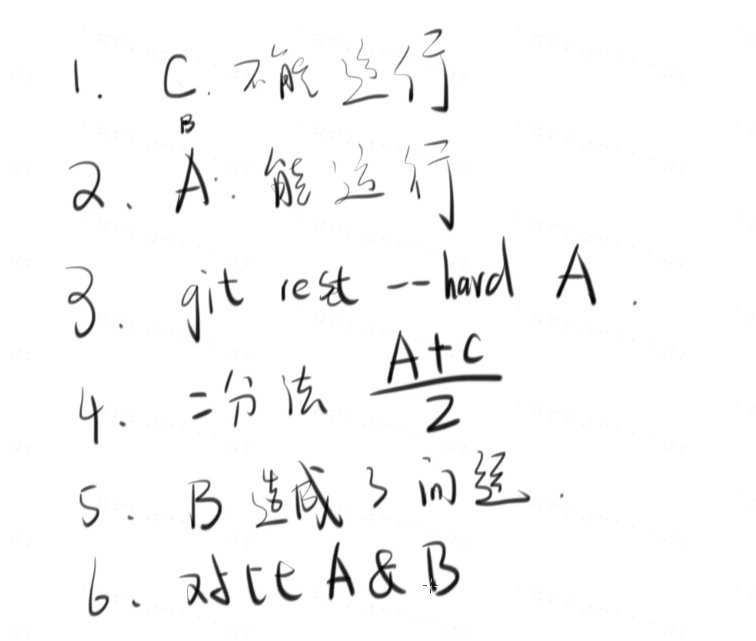 1. C. 不能运行
B
2. A. 能运行
3. git rest --hard A.
4. 二分法 A+C/2
5. B 造成了问题.
6. 对比 A & B